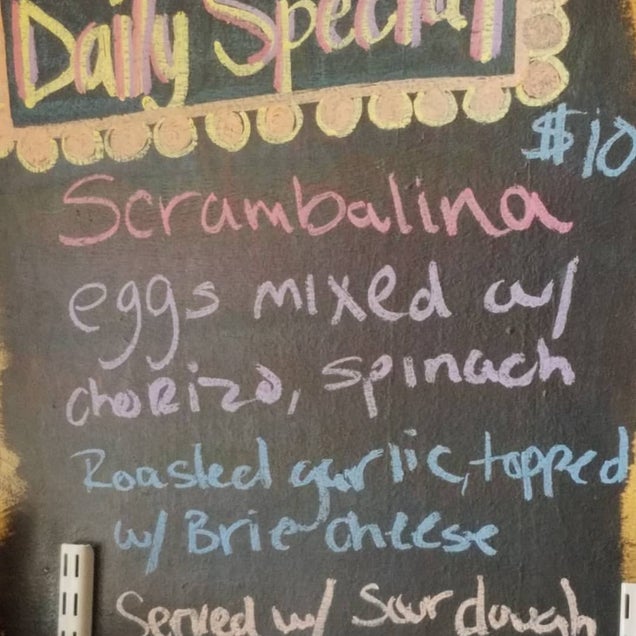 Daily Special
$10
Scrambalina
eggs mixed w/
choRizo, spinach
Roasted garlic, topped
w/ Brie cheese
Served w/ Sour dough